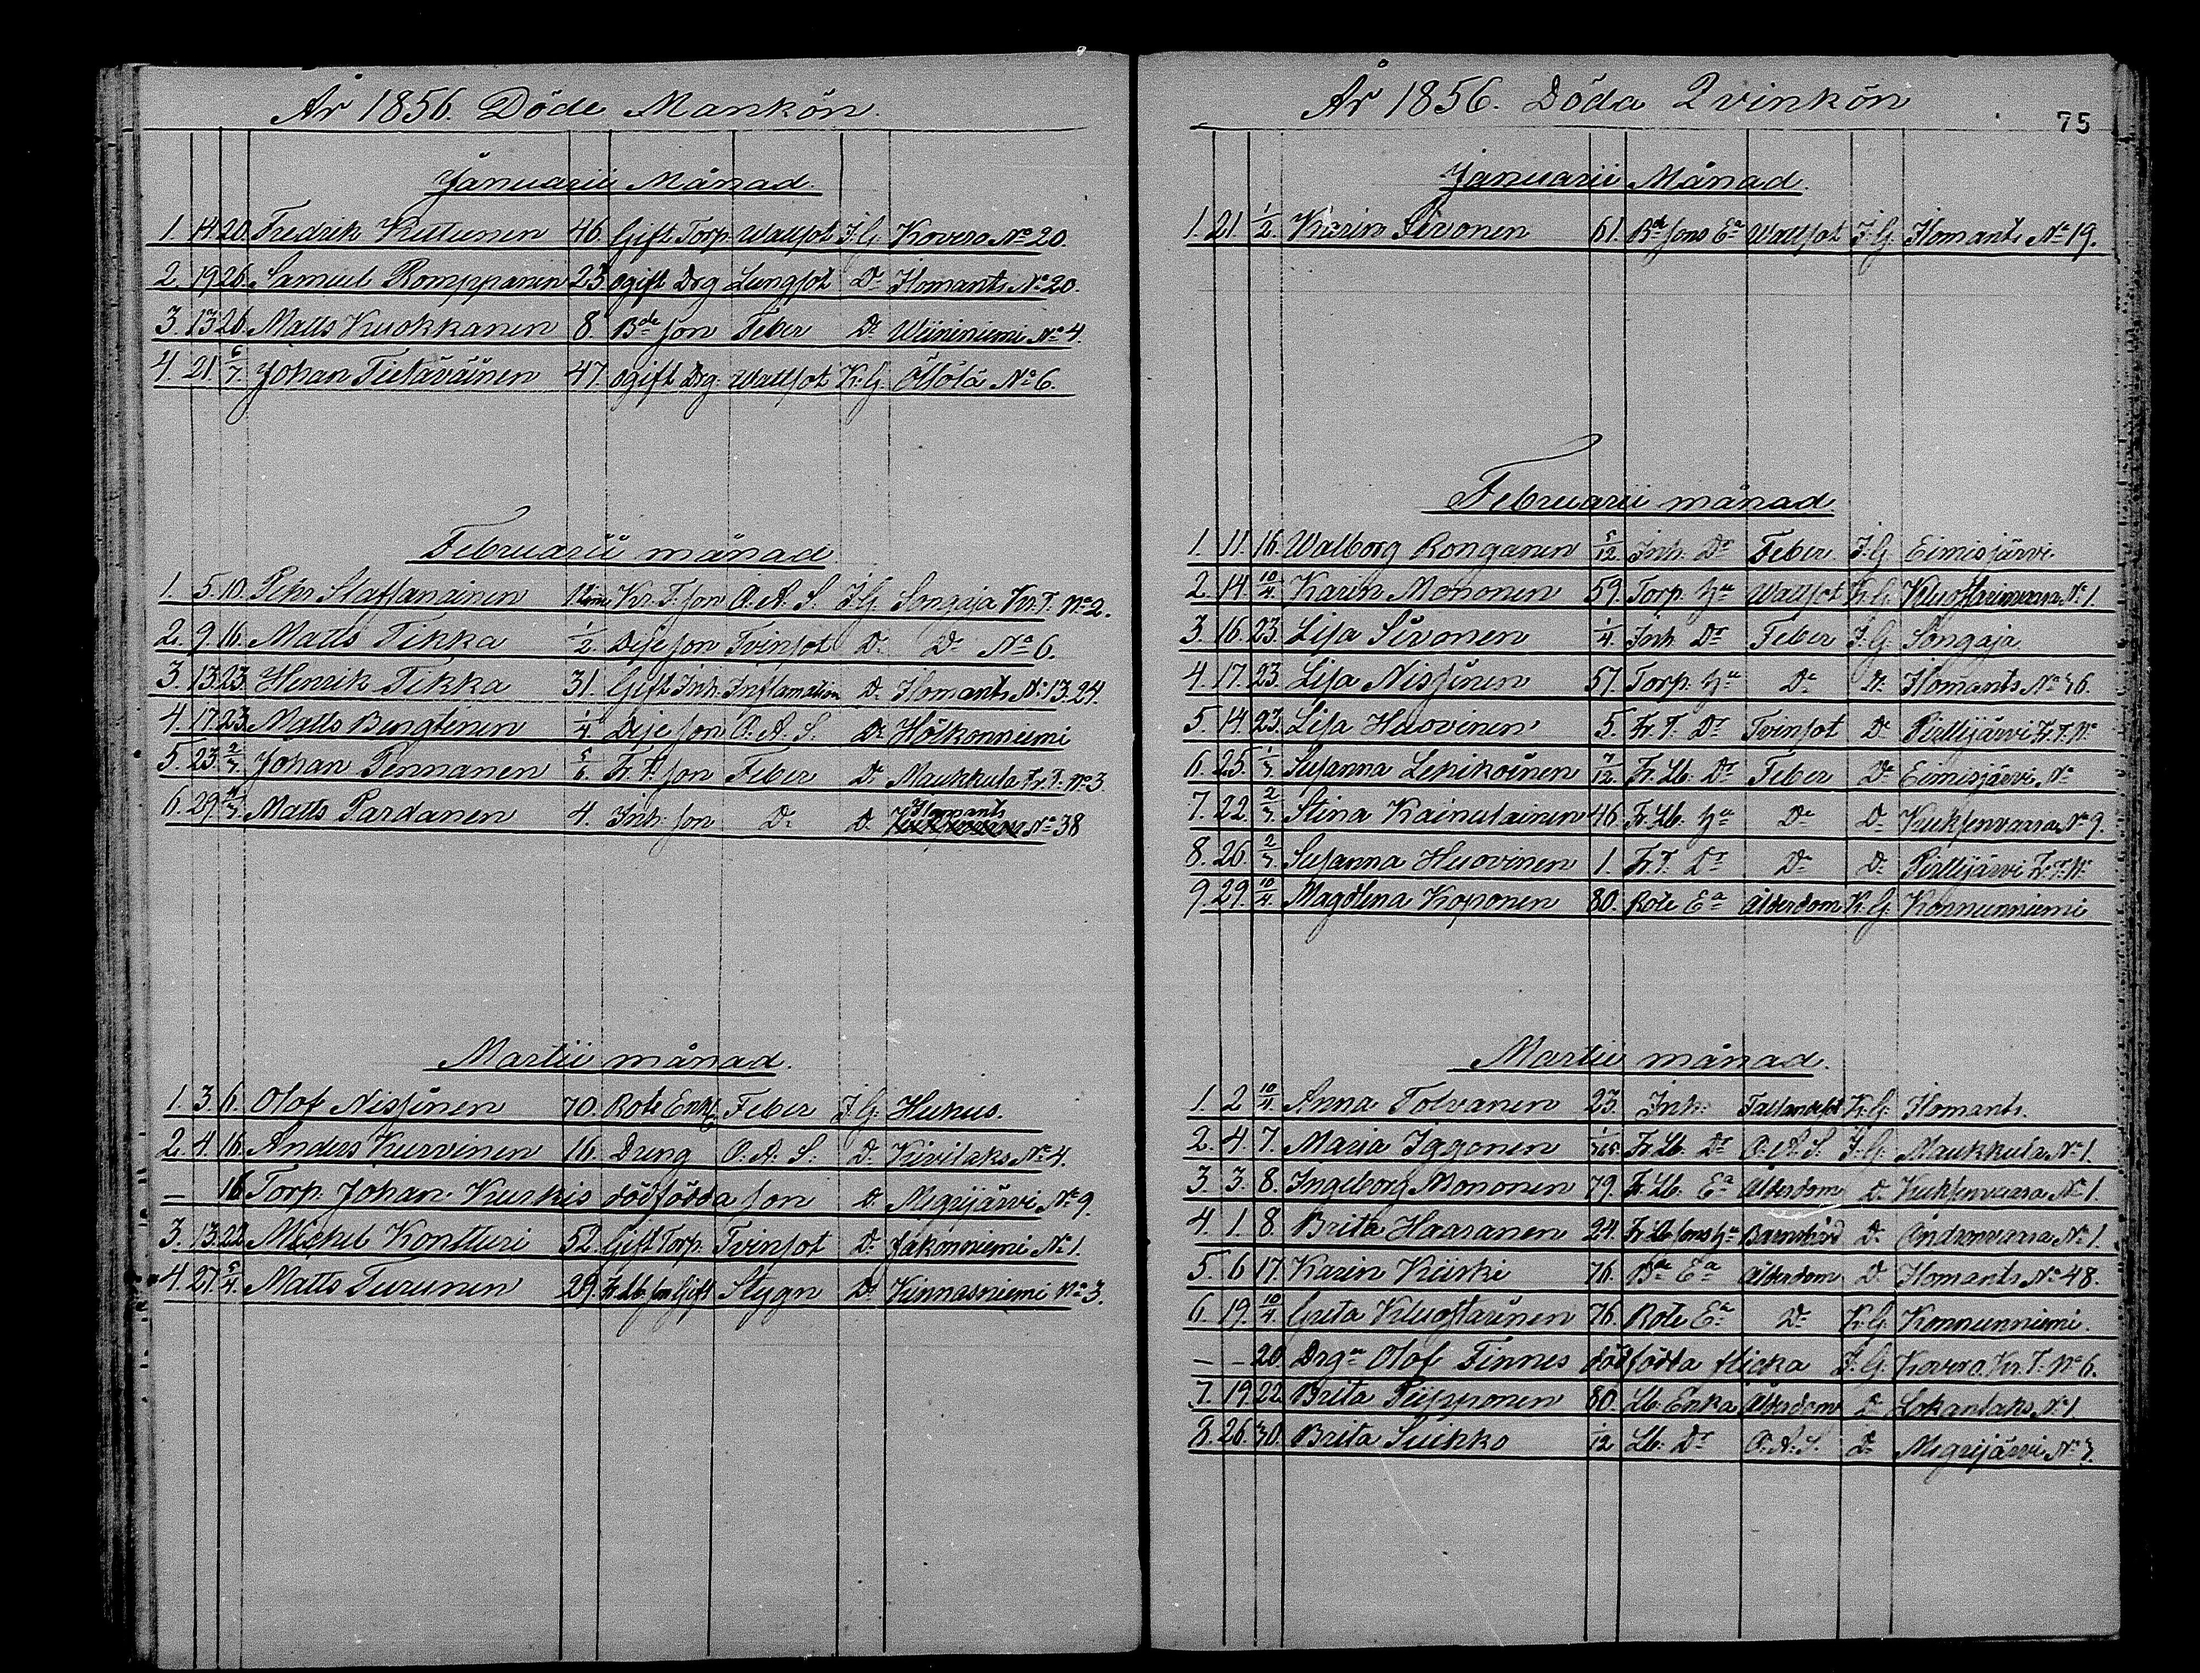 År 1856. Döde Mankön.
Januarii Månad.
1. 14 20. Fredrik Kuttunen 46. Gift Torp. Wattsot I. G. Kovero No 20.
2. 19 26. Samuel Romppanen 23. ogift Drg Lungsot Do Ilomants No 20.
3. 13 26. Matts Kuokkanen 8. Bde son Feber Do Wiininiemi No 4.
4. 21. 6/7. Johan Tietäväinen 47. ogift Drg. Wattsot K. G. Öllölä No 6.
Februarii månad
1. 5. 10. Pehr Staffanainen Kr. T. son O. A. S. I. G. Songaja Kr. T. No 2.
2. 9. 16. Matts Tikka 1/2. Deje son Tvinsot Do Do No 6.
3. 13. 23. Henrik Tikka 31. Gift Inh. Inflamation Do Ilomants No 13. 24.
4. 17. 23. Matts Bengtinen 1/4 Deje son O. A. S. Do Hölkönniemi
5. 23. 2/3. Johan Pennanen 5/6 Fr. T. son Feber Do Maukkula Fr. T. No 3
6. 29. Matts Pardanen 4. Inh. son Do Do Ilomants No 38
Martii månad.
1. 3 6. Olof Nissinen 70. Rote Enkl. Feber I. G. Huhus.
2. 4. 16. Anders Kurvinen 16. Dreng O. A. S. Do Kivilaks No 4.
— 16 Torp. Johan Kurkis dödfödda son Do Megrijärvi No 9.
3. 13. 22. Michel Kontturi 52. Gift Torp. Tvinsot Do Jakonniemi No 1.
4. 27. 5/4. Matts Turunen 29. Fr. Lb. son Gift Stygn Do Kinnasniemi No 3.
År 1856. Döda Qvinkön
75
Januarii Månad.
1. 21 1/2. Karin Sivonen 61. Bde sons Ea Wattsot I. G. Ilomants No 19.
Februarii månad.
1. 11. 16. Walborg Ronganen 5/12 Inh. Dr Feber I. G. Eimisjärvi
2. 14. 10/4. Karin Mononen 59. Torp. Hu Wattsot K. G. No 1.
3. 16. 23. Lisa Sivonen 1/4 Inh. Dr Feber I. G. Songaja
4. 17. 23 Lisa Nissinen 57. Torp. Hu Do Do Ilomants No 36.
5. 14. 23. Lisa Huovinen 5. Fr. T. Dr Tvinsot Do Piellijärvi Fr. T. No
6. 25. 1/3. Susanna Lehikoinen 7/12 Fr. Lb. Dr Feber Do Eimisjärvi No
7. 22. 2/3. Stina Kainulainen 46. Fr. Lb. Hu Do Do Kuksenvaara No 9.
8. 26. 2/3. Susanna Huovinen 1. Fr. T. Dr Do Do Piellijärvi Fr. T. No
9. 29. 10/4. Magdlena Koponen 80. Rote Ea Ålderdom K. G. Konnunniemi
Martii månad.
1. 2 10/4. Anna Tolvanen 23. Inh. K. G. Ilomants.
2. 4. 7. Maria Iggonen Fr. Lb. Dr O. A. S. I. G. Maukkula No 1.
3. 3. 8. Ingeborg Mononen 79. Fr. Lb. Ea Ålderdom Do Kuksenvaara No 1.
4. 1. 8. Brita Haaranen 24. Fr. Lb. sons Hu Barnsbörd Do Andronvaara No 1.
5. 6 17. Karin Kurki 76. Ba Ea Ålderdom Do Ilomants No 48.
6. 19. 10/4. Greta Kluostarinen 76. Rote Ea Do K. G. Konnunniemi.
— — 20. Drgn Olof Tinnus dödfödda flicka I. G. Kovero Kr. T. No 6.
7. 19. 22. Brita Piipponen 80. Lb. Enka Ålderdom Do Lokanlaks No 1.
8. 26. 30. Brita Suikko 12 Lb. Dr O. A. S. Do Megrijärvi No 3.